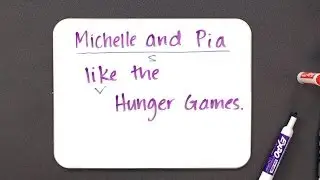 Michelle and Pia
S
like the
V
Hunger Games.
EXPO